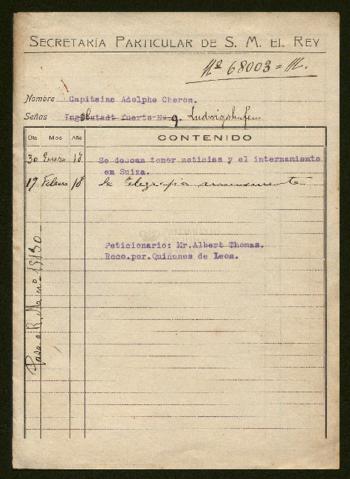 SECRETARÍA PARTICULAR DE S. M. EL REY
Nº 68003 = M.
Nombre Capitaine Adolphe Cheron.
Señas Ingolstadt fuerte No 9. Ludwigshafen
Día Mes Año CONTENIDO
30 Enero 18 Se desean tener noticias y el internamiento
en Suiza.
17 Febero 18 Se telegrafia nuevamente
Peticionario: Mr.Albert Thomas.
Reco.por.Quiñones de Leon.
Pasa a R. M. nº 15130